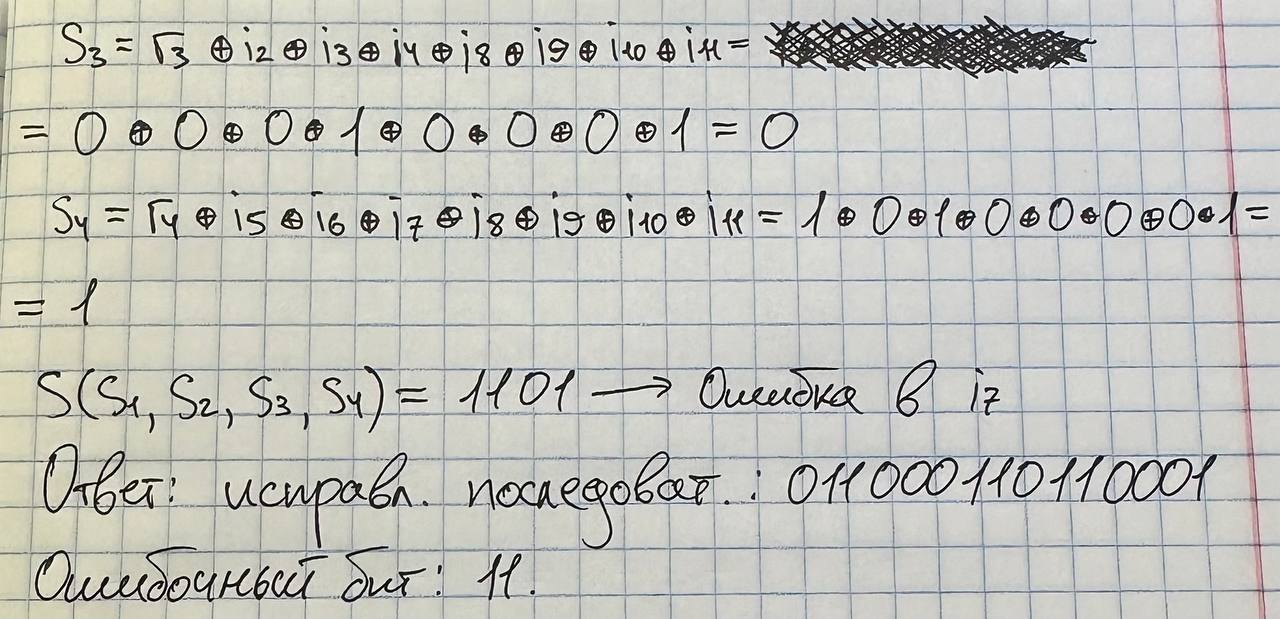 S3 = r3 ⊕ i2 ⊕ i3 ⊕ i4 ⊕ i8 ⊕ i9 ⊕ i10 ⊕ i11 =
= 0 ⊕ 0 ⊕ 0 ⊕ 1 ⊕ 0 ⊕ 0 ⊕ 0 ⊕ 1 = 0
S4 = r4 ⊕ i5 ⊕ i6 ⊕ i7 ⊕ i8 ⊕ i9 ⊕ i10 ⊕ i11 = 1 ⊕ 0 ⊕ 1 ⊕ 0 ⊕ 0 ⊕ 0 ⊕ 0 ⊕ 1 =
= 1
S(S1, S2, S3, S4) = 1101 → Ошибка в i7
Ответ: исправл. последоват.: 011000110110001
Ошибочный бит: 11.